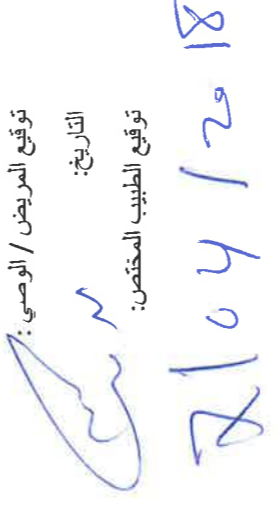 توقيع المريض / الوصي:
التاريخ:
توقيع الطبيب المختص:
8/04/2018